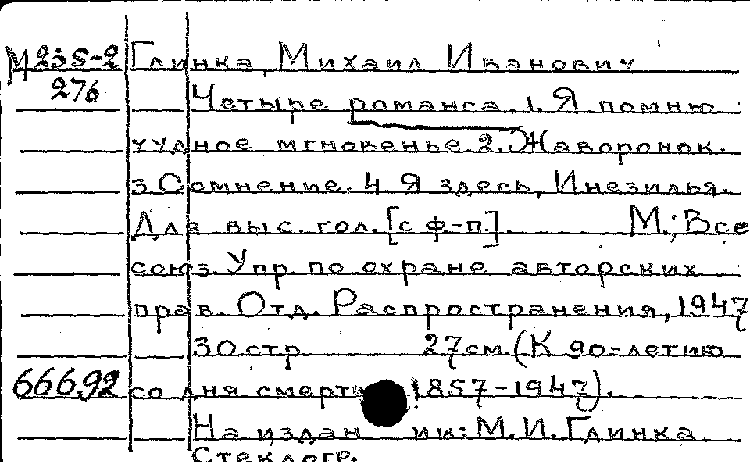 М 235-2 Глинка, Михаил Иванович
276 Четыре романса. 1. Я помню
чудное мгновенье. 2. Жаворонок.
3. Сомнение. 4. Я здесь, Инезилья.
Для выс. гол. [с ф-п]. М.; Все
союз. Упр. по охране авторских
прав. Отд. Распространения, 1947
30 стр. 27 см. (К 90-летию
66692 со дня смерти 1857-1947).
На издан ии: М. И. Глинка.
Стеклогр.